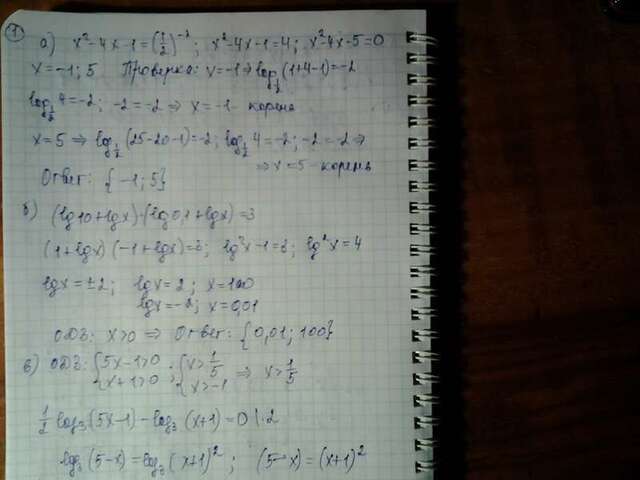 1
а) x²-4x-1=(1/2)^-2; x²-4x-1=4; x²-4x-5=0
x=-1; 5 Проверка: x=-1⇒log_1/2(1+4-1)=-2
log_1/2 4=-2; -2=-2 ⇒ x=-1 - корень
x=5 ⇒ log_1/2(25-20-1)=-2; log_1/2 4=-2; -2=-2 ⇒
⇒ x=5 - корень
Ответ: {-1; 5}
б) (lg10+lgx)·(lg0,1+lgx)=3
(1+lgx)(-1+lgx)=3; lg²x-1=3; lg²x=4
lgx=±2; lgx=2; x=100
lgx=-2; x=0,01
ОДЗ: x>0 ⇒ Ответ: {0,01; 100}
в) ОДЗ: {5x-1>0 ; {x>1/5 ⇒ x>1/5
{x+1>0 {x>-1
1/2 log₃(5x-1)-log₃(x+1)=0 |·2
log₃(5-x)=log₃(x+1)²; (5-x)=(x+1)²